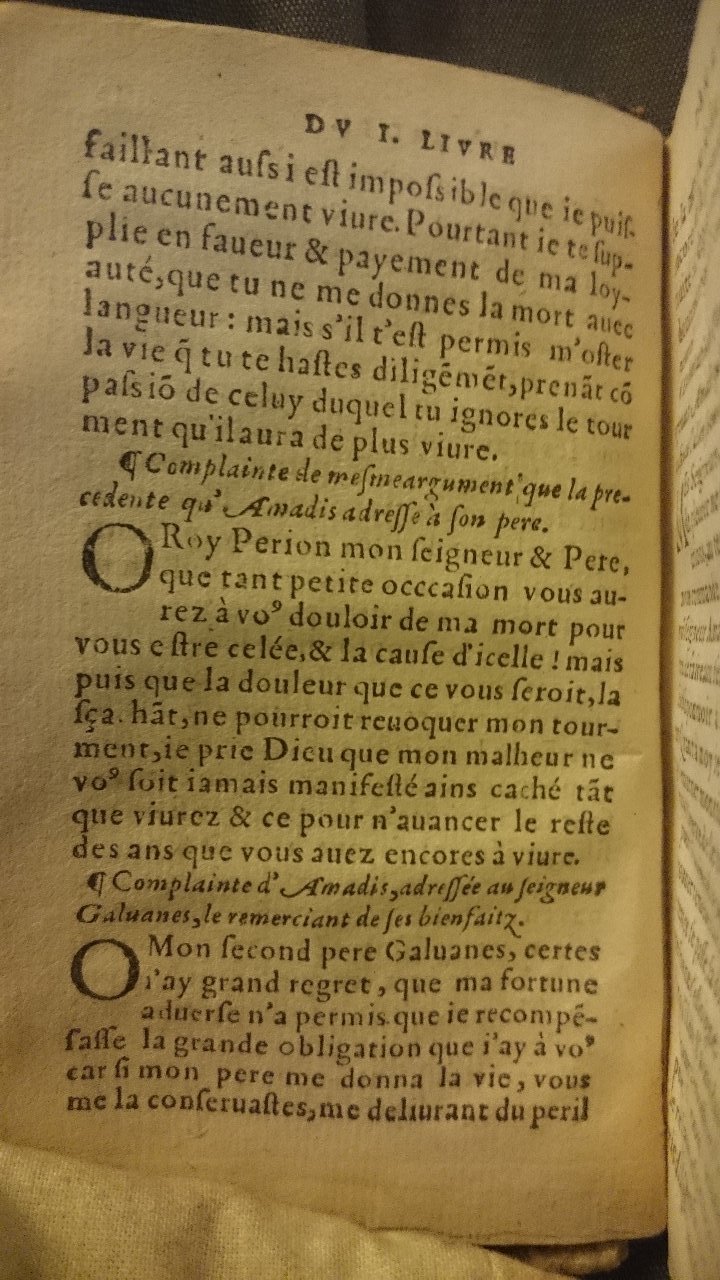 DV I. LIVRE
faillant aussi est impossible que ie puis-
se aucunement viure. Pourtant ie te sup-
plie en faueur & payement de ma loy-
auté, que tu ne me donnes la mort auec
langueur : mais s'il t'est permis m'oster
la vie q̃ tu te hastes diligẽmẽt, prenãt cõ
passiõ de celuy duquel tu ignores le tour
ment qu'il aura de plus viure.
¶ Complainte de mesme argument que la pre-
cedente qu'Amadis adresse à son pere.
O Roy Perion mon seigneur & Pere,
que tant petite occcasion vous au-
rez à voꝰ douloir de ma mort pour
vous estre celée, & la cause d'icelle ! mais
puis que la douleur que ce vous seroit, la
sça. hãt, ne pourroit reuoquer mon tour-
ment, ie prie Dieu que mon malheur ne
voꝰ soit iamais manifesté ains caché tãt
que viurez & ce pour n'auancer le reste
des ans que vous auez encores à viure.
¶ Complainte d'Amadis, adressée au seigneur
Galuanes, le remerciant de ses bienfaitz.
O Mon second pere Galuanes, certes
i'ay grand regret, que ma fortune
aduerse n'a permis que ie recompẽ-
sasse la grande obligation que i'ay à voꝰ
car si mon pere me donna la vie, vous
me la conseruastes, me deliurant du peril